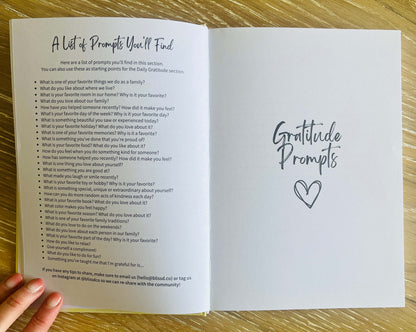 A List of Prompts You'll Find
Here are a list of prompts you'll find in this section.
You can also use these as starting points for the Daily Gratitude section:
• What is one of your favorite things we do as a family?
• What do you like about where we live?
• What is your favorite room in our home? Why is it your favorite?
• What do you love about our family?
• How have you helped someone recently? How did it make you feel?
• What's your favorite day of the week? Why is it your favorite day?
• What is something beautiful you saw or experienced today?
• What is your favorite holiday? What do you love about it?
• What is one of your favorite memories? Why is it a favorite?
• What is something you've done that you're proud of?
• What is your favorite food? What do you like about it?
• How do you feel when you do something kind for someone?
• How has someone helped you recently? How did it make you feel?
• What is one thing you love about yourself?
• What is something you are good at?
• What made you laugh or smile recently?
• What is your favorite toy or hobby? Why is it your favorite?
• What is something special, unique or extraordinary about yourself?
• How can you do more random acts of kindness each day?
• What is your favorite book? What do you love about it?
• What color makes you feel happy?
• What is your favorite season? What do you love about it?
• What is one of your favorite family traditions?
• What do you love to do on the weekends?
• What do you love about each person in our family?
• What is your favorite part of the day? Why is it your favorite?
• How do you like to relax?
• Give yourself a compliment!
• What do you like to do for fun?
• Something you've taught me that I'm grateful for is...
If you have any tips to share, make sure to email us (hello@blisud.co) or tag us
on Instagram at @blisudco so we can re-share with the community!
Gratitude
Prompts